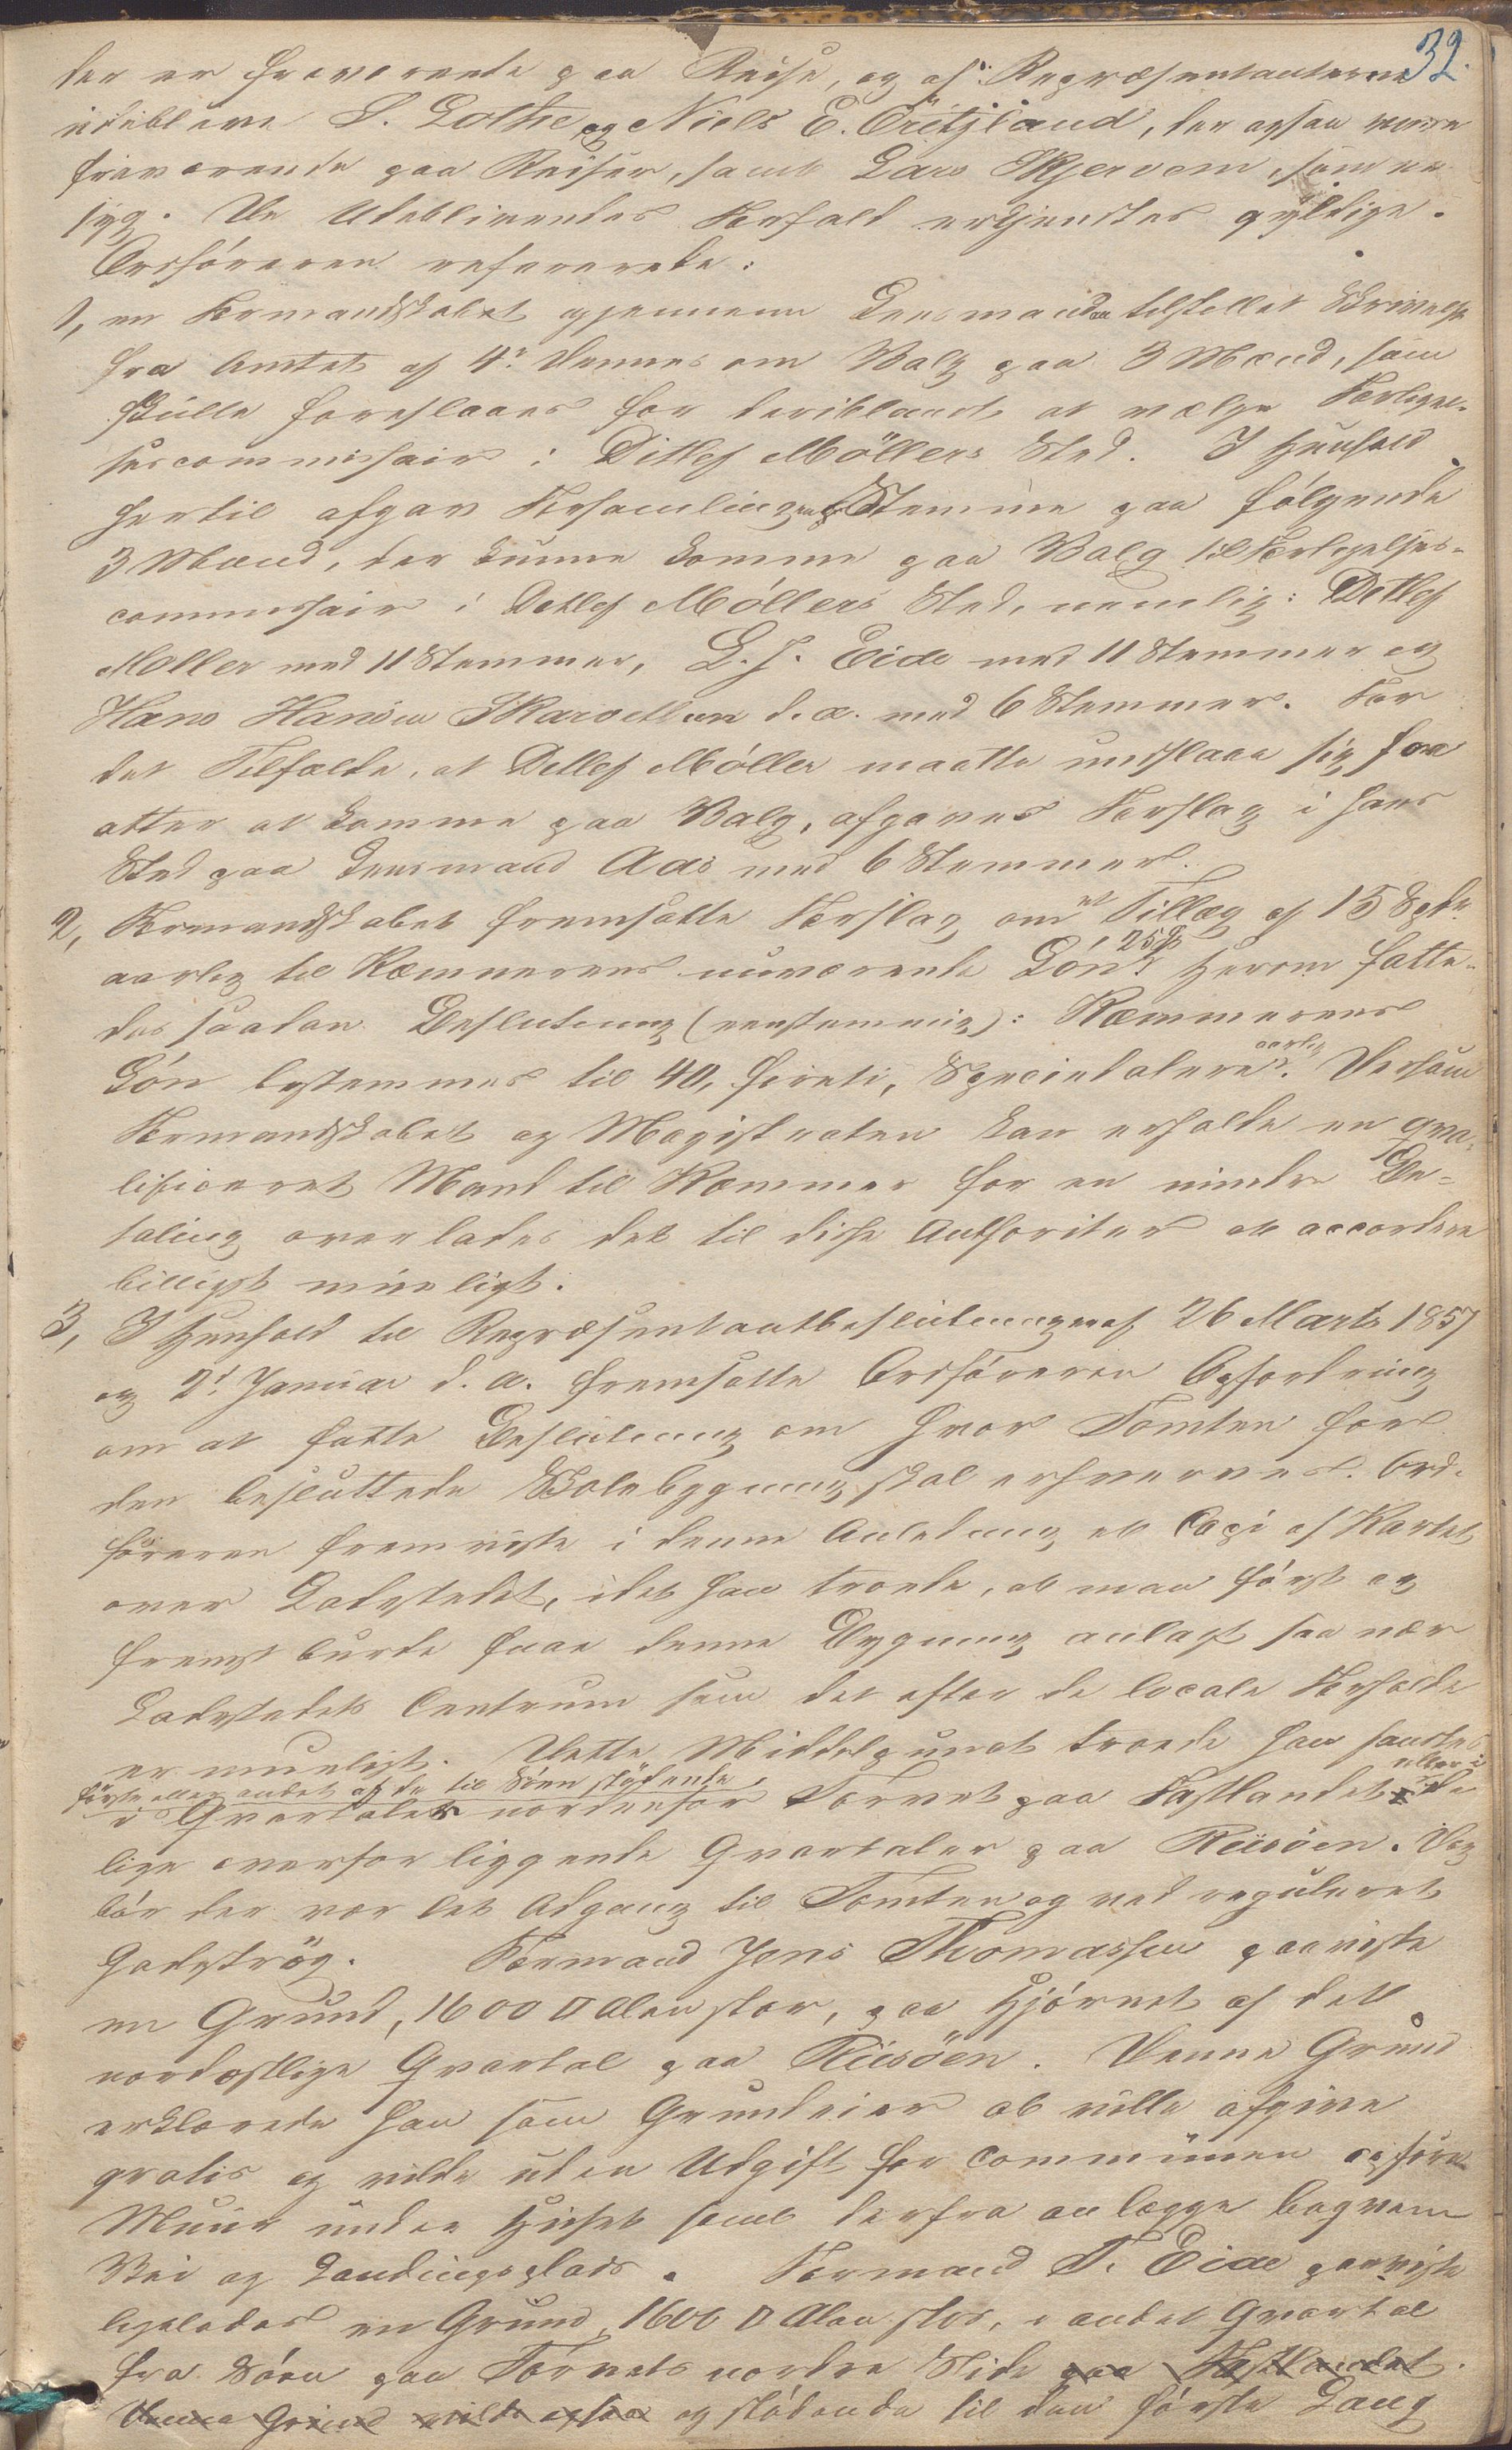 32.
der er fraværende paa Reise, og af Repræsentanterne
udebleve L. Lothe og Niels E. Öritzland, der ogsaa vare
fraværende paa Reiser, samt Lars Skjervem, som er
syg. De Udeblivendes Forfald erkjendtes gyldige.
Ordföreren refererede:
1, en Formandskabet gjennem Lensmanden tilstillet Skrivelse
fra Amtet af 4de dennes om Valg paa 3 Mænd, som
skulle foreslaaes for deriblandt at vælge Forligel-
sescommissair i Ditlef Möllers Sted. I Henhold
hertil afgav Forsamlingen Stemme paa fölgende
3 Mænd, der kunne komme paa Valg til Forligelses-
commissair i Detlef Möllers Sted, nemlig: Detlef
Möller med 11 Stemmer, L. J. Eide med 11 Stemmer og
Hans Hansen Skaroethun d.æ. med 6 Stemmer. For
det Tilfælde, at Detlef Möller maatte undslaae sig for
atter at komme paa Valg, afgaves Forslag i hans
Sted paa Lensmand Aas med 6 Stemmer.
2, Formandskabet fremsatte Forslag om et Tillæg af 15 Spdlr
aarlig til Kæmnerens nuværende Lön, 25 Spd. Herom fatte-
des saadan Beslutning (eenstemmig): Kæmnerens
Lön bestemmes til 40, fireti, Speciedalere aarlig. Dersom
Formandskabet og Magistraten kan erholde en qva-
lificeret Mand til Kæmner for en mindre Be-
taling overlades det til disse Authoriteter at accordere
billigst mueligt.
3, I Henhold til Repræsentantbeslutningen af 26 Marts 1857
og 2den Januar d. a. fremsatte Ordföreren Opfordring
om at fatte Beslutning om hvor Tomten for
den besluttede Skolebygning skal erhverves. Ord-
föreren fremviste i denne Anledning en Copi af Kartet
over Ladestedet, idet han troede, at man först og
fremst burde faae denne Bygning anlagt saa nær
Ladestedets Centrum som det efter de locale Forholde
er mueligt. Dette Middelpunct troede han fandtes
förste eller andet af de til Söen stödende
i Qvartaler nordenfor Torvet paa Fastlandet eller i de
lige overfor liggende Qvartaler paa Riisöen. Dog
bör der være let Adgang til Tomten og ved reguleret
Gadeströg. Formand Jens Thomassen paaviste
en Grund, 1600 □ Alen stor, paa Hjörnet af det
nordostlige Qvartal paa Riisöen. Denne Grund
erklærede han som Grundeier at ville afgive
gratis og vilde uden Udgift for Communen opföre
Muur under Huset samt derfra anlægge beqvem
Vei og Landingsplads. Formand T. Eide paaviste
ligeledes en Grund, 1600 □ Alen stor, i andet Qvartal
fra Söen paa Torvets nordre Side paa Fastlandet.
Denne Grund vilde ogsaa og stödende til den förste Lang